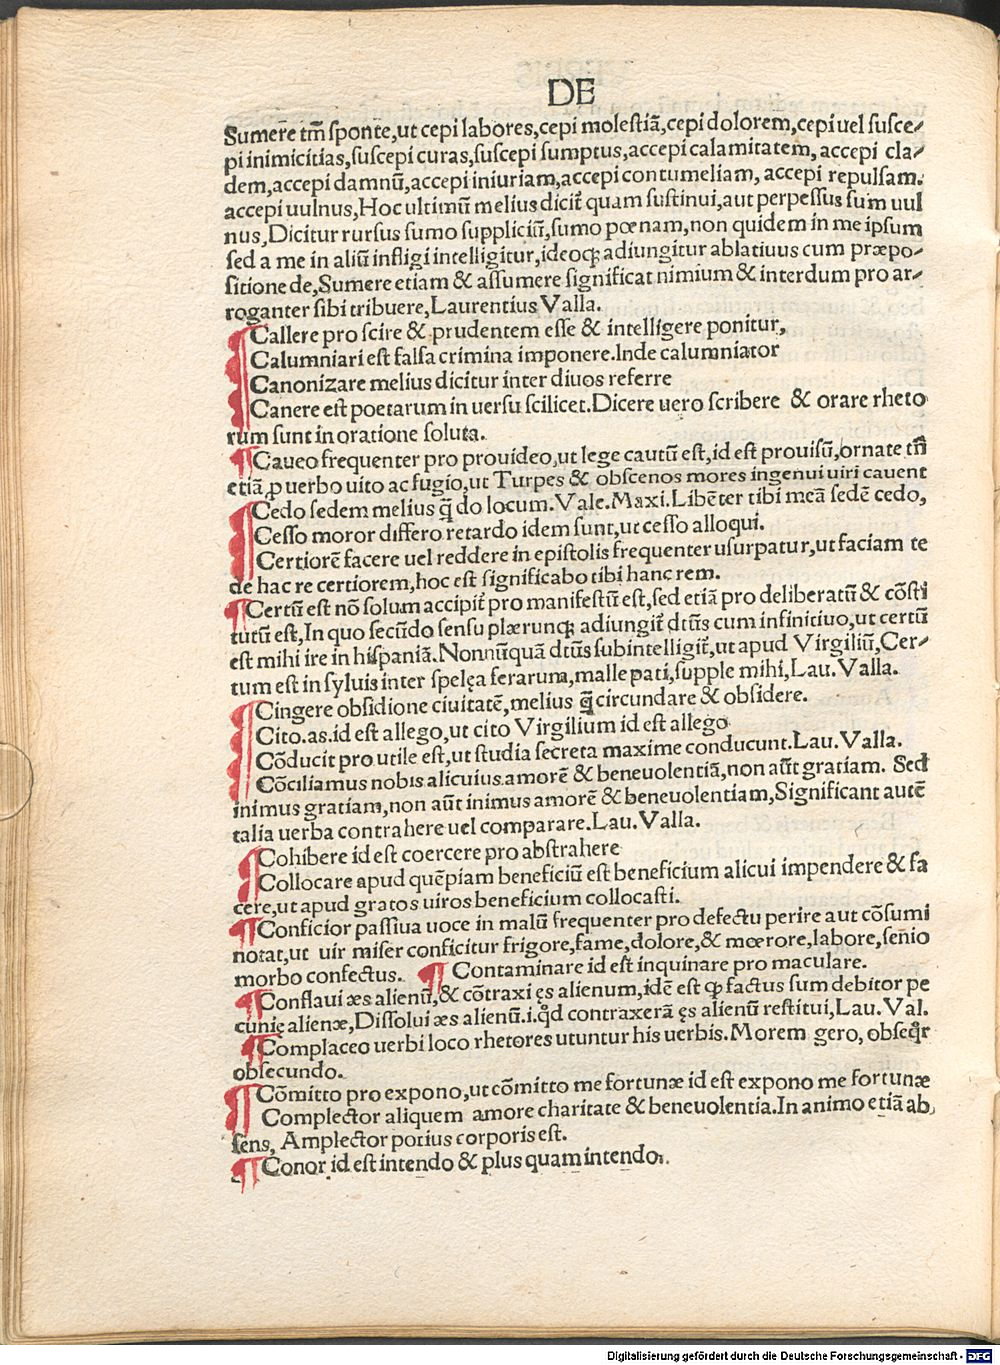 DE
Sumere tm̄ sponte,ut cepi labores,cepi molestiā,cepi dolorem,cepi uel susce⸗
pi inimicitias,suscepi curas,suscepi sumptus,accepi calamitatem, accepi cla⸗
dem,accepi damnū,accepi iniuriam,accepi contumeliam, accepi repulsam.
accepi uulnus,Hoc ultimū melius dicit̄ quam sustinui,aut perpessus sum uul
nus,Dicitur rursus sumo suppliciū,sumo pœnam,non quidem in me ipsum
sed a me in aliū infligi intelligitur,ideoqꝫ adiungitur ablatiuus cum præpo⸗
sitione de,Sumere etiam & assumere significat nimium & interdum pro ar⸗
roganter sibi tribuere,Laurentius Valla.
¶ Callere pro scire & prudentem esse & intelligere ponitur,
Calumniari est falsa crimina imponere.Inde calumniator
Canonizare melius dicitur inter diuos referre
Canere est poetarum in uersu scilicet.Dicere uero scribere & orare rheto
rum sunt in oratione soluta.
¶ Caueo frequenter pro prouideo,ut lege cautū est,id est prouisū,ornate tn̄
etiā ꝓ uerbo uito ac fugio,ut Turpes & obscenos mores ingenui uiri cauent
¶ Cedo sedem melius q̄ do locum.Vale.Maxi.Libēter tibi meā sedē cedo,
Cesso moror differo retardo idem sunt,ut cesso alloqui.
Certiorē facere uel reddere in epistolis frequenter usurpatur,ut faciam te
de hac re certiorem,hoc est significabo tibi hanc rem.
¶ Certū est nō solum accipit̄ pro manifestū est,sed etiā pro deliberatū & cōsti
tutū est,In quo secūdo sensu plærunqꝫ adiungit̄ dt̄us cum infinitiuo,ut certū
est mihi ire in hispaniā.Nonnūquā dt̄us subintelligit̄,ut apud Virgiliū,Cer⸗
tum est in syluis inter spelęa ferarum,malle pati,supple mihi,Lau.Valla.
¶ Cingere obsidione ciuitatē,melius q̄ circundare & obsidere.
Cito.as.id est allego,ut cito Virgilium id est allego
Cōducit pro utile est,ut studia secreta maxime conducunt.Lau.Valla.
Cōciliamus nobis alicuius amorē & beneuolentiā,non aūt gratiam. Sed
inimus gratiam,non aūt inimus amorē & beneuolentiam,Significant autē
talia uerba contrahere uel comparare.Lau.Valla.
¶ Cohibere id est coercere pro abstrahere
Collocare apud quēpiam beneficiū est beneficium alicui impendere & fa
cere,ut apud gratos uiros beneficium collocasti.
¶ Conficior passiua uoce in malū frequenter pro defectu perire aut cōsumi
notat,ut uir miser conficitur frigore,fame,dolore,& mœrore,labore,senio
morbo confectus. ¶ Contaminare id est inquinare pro maculare.
¶ Conflaui æs alienū,& cōtraxi ęs alienum,idē est ꝙ factus sum debitor pe
cunię alienæ,Dissolui æs alienū.i.qd̄ contraxerā ęs alienū restitui,Lau.Val.
¶ Complaceo uerbi loco rhetores utuntur his uerbis.Morem gero, obseqr̄
obsecundo.
¶ Cōmitto pro expono,ut cōmitto me fortunæ id est expono me fortunæ
Complector aliquem amore charitate & beneuolentia.In animo etiā ab
sens, Amplector potius corporis est.
¶ Conor id est intendo & plus quam intendo.
Digitalisierung gefördert durch die Deutsche Forschungsgemeinschaft - DFG